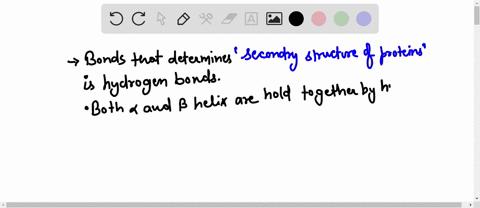 → Bonds that determines 'secondry structure of proteins'
is hydrogen bonds.
• Both α and β helix are hold together by h